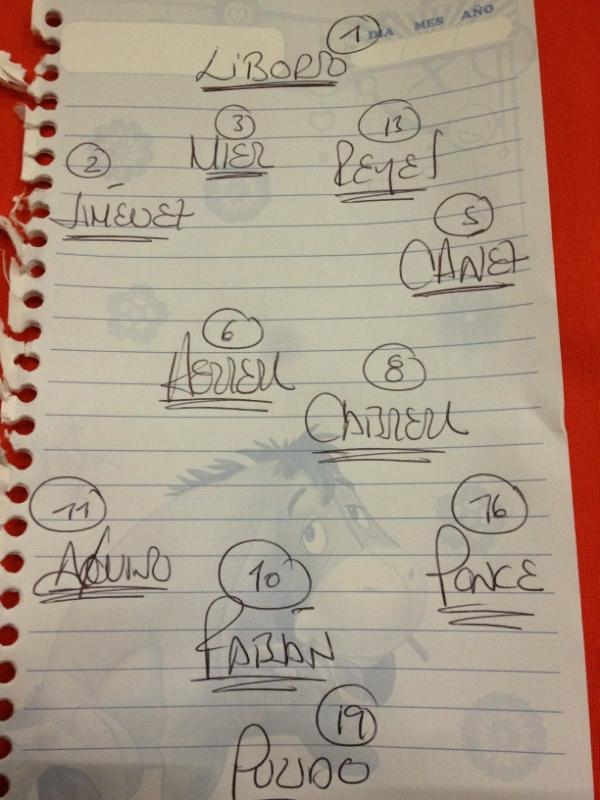 DIA MES AÑO
1
LIBORIO
3
13
2
MIER
REYES
JIMÉNEZ
5
6
HERRERA
8
CABRERA
11
16
AQUINO
10
PONCE
FABIÁN
19
PULIDO